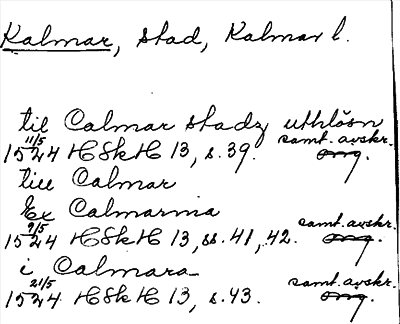 Kalmar, stad, Kalmar l.
til Calmar stadz uthlösn
1524 11/5 HSkH 13, s. 39. samt. avskr. orig.
till Calmar
Ex Calmarnia
1524 9/5 HSkH 13, ss. 41, 42. samt. avskr. orig.
i Calmara
1524 21/5 HSkH 13, s. 43. samt. avskr. orig.